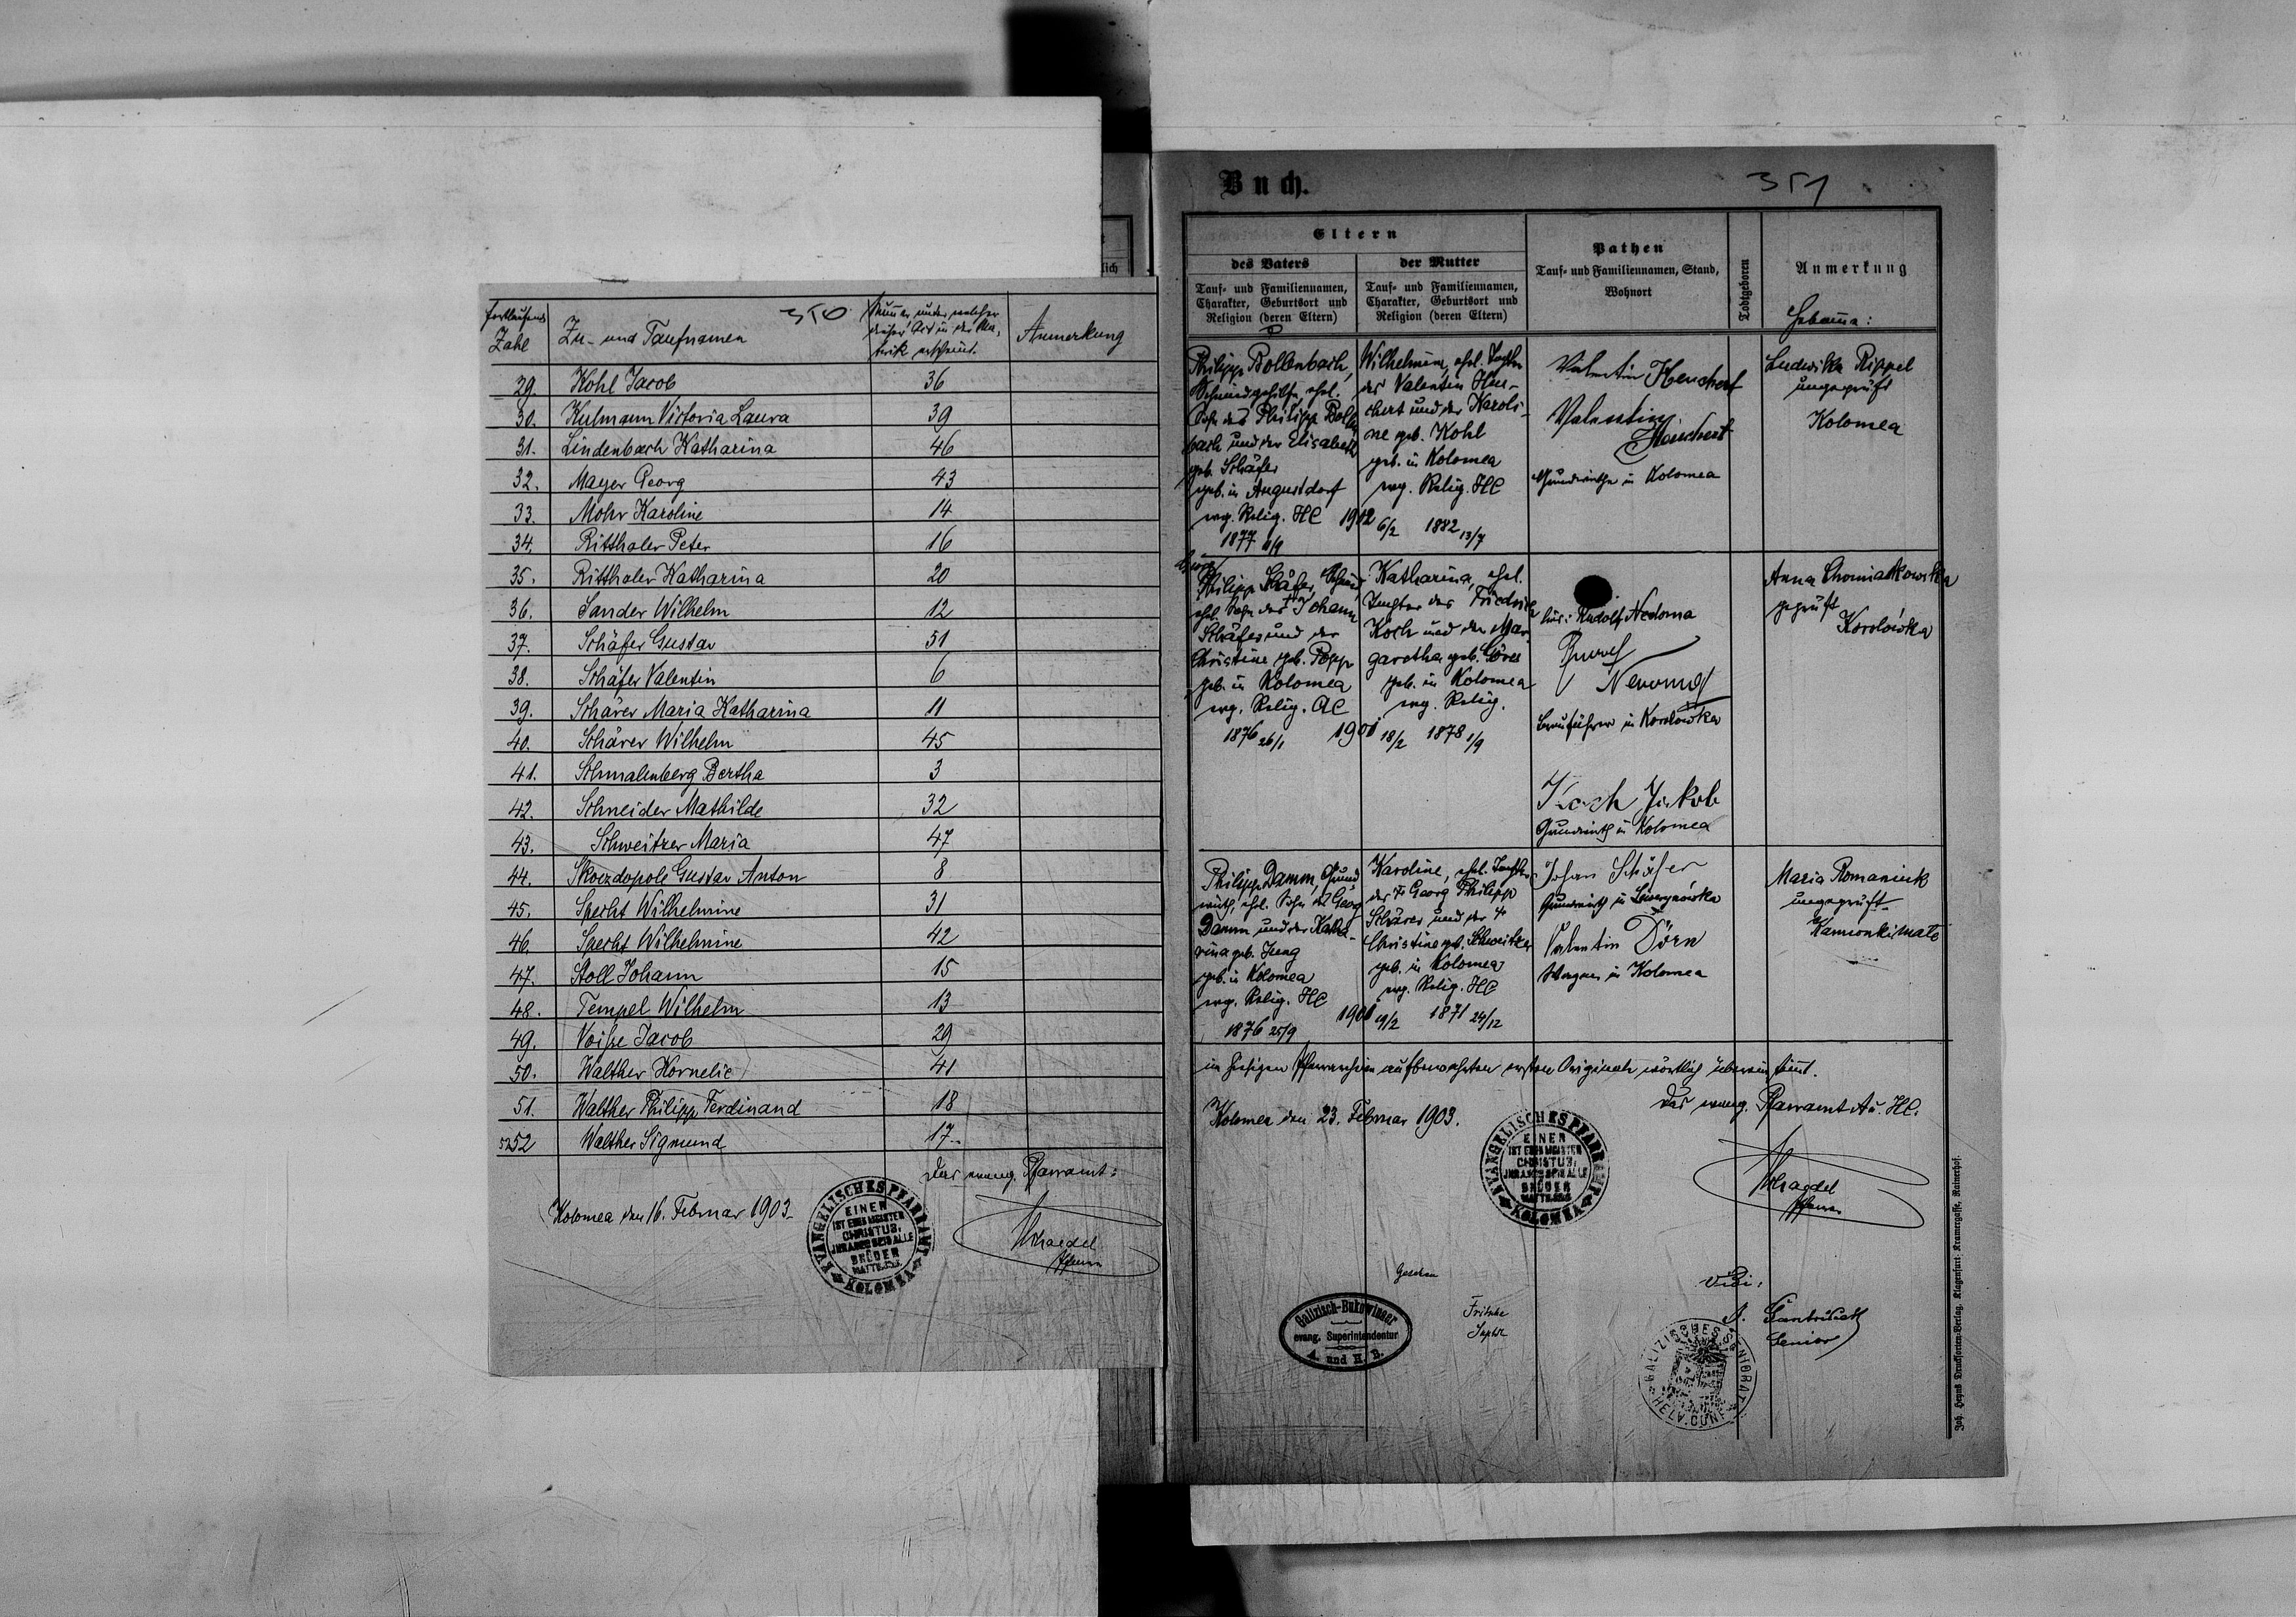 fortlaufende
Zahl
Zu- und Taufnamen
350
Nummer unter welcher
dieser Act in der Ma-
trik erscheint.
Anmerkung
29. Kohl Jacob 36
30. Kulmann Victoria Laura 39
31. Lindenbach Katharina 46
32. Mayer Georg 43
33. Mohr Karoline 14
34. Ritthaler Peter 16
35. Ritthaler Katharina 20
36. Sander Wilhelm 12
37. Schäfer Gustav 51
38. Schäfer Valentin 6
39. Schärer Maria Katharina 11
40. Schärer Wilhelm 45
41. Schmalenberg Bertha 3
42. Schneider Mathilde 32
43. Schweitzer Maria 47
44. Skoczdopole Gustav Anton 8
45. Specht Wilhelmine 31
46. Specht Wilhelmine 42
47. Stoll Johann 15
48. Tempel Wilhelm 13
49. Voiße Jacob 29
50. Walther Kornelie 41
51. Walther Philipp Ferdinand 18
52 Walther Sigmund 17
Das evang. Pfarramt:
Kolomea den 16. Februar 1903
EVANGELISCHES PFARRAMT
EINER
IST EUER MEISTER
CHRISTUS,
IHR ABER SEID ALLE
BRÜDER
KOLOMEA
Pfarrer
lich
Buch.
351
Eltern
des Vaters
Tauf- und Familiennamen,
Charakter, Geburtsort und
Religion (deren Eltern)
der Mutter
Tauf- und Familiennamen,
Charakter, Geburtsort und
Religion (deren Eltern)
Pathen
Tauf- und Familiennamen, Stand,
Wohnort
Todtgeboren
Anmerkung
Hebamme:
Philipp Bollenbach,
Schmiedgehilfe, ehel.
Sohn des Philipp Bollen
bach und der Elisabeth
geb. Schäfer
geb. in Augustdorf
evg. Relig. HC
1877 4/9
1902 6/2
Wilhelmine, ehel. Tochter
des Valentin Heu-
chert und der Karoli-
ne geb. Kohl
geb. in Kolomea
evg. Relig. HC
1882 13/7
Valentin Heuchert
Valentin
Heuchert
Grundwirthe in Kolomea
Ludwika Rippel
ungeprüft
Kolomea
Philipp Schäfer, Schmied
ehel. Sohn des Johann
Schäfer und der
Christine geb. Popp
geb. in Kolomea
evg. Relig. AC
1876 26/1
1901 18/2
Katharina, ehel.
Tochter des Friedrich
Koch und der Mar
garetha geb. Göres
geb. in Kolomea
evg. Relig.
1878 1/9
für: Rudolf Nedoma
Bauführer in Korolówka
Koch Jakob
Grundwirth in Kolomea
Anna Chomiakowska
geprüft
Korolówka
Philipp Damm, Grund
wirth, ehel. Sohn des Georg
Damm und der Katha-
rina geb. Jung
geb. in Kolomea
evg. Relig. HC
1876 25/9
1901 19/2
Karoline, ehel. Tochter
des † Georg Philipp
Schärer und der †
Christine geb. Schweitzer
geb. in Kolomea
evg. Relig. HC
1871 24/12
Johan Schäfer
Grundwirth in Seweynówka
Valentin Dörn
Wagner in Kolomea
Maria Romaniuk
ungeprüft
Kamionki małe
im hiesigen Pfarrarchive aufbewahrten ersten Originale wörtlich übereinstimmt.
Das evang. Pfarramt A u. HC.
Kolomea den 23. Februar 1903.
EVANGELISCHES PFARRAMT
EINER
IST EUER MEISTER
CHRISTUS,
IHR ABER SEID ALLE
BRÜDER
KOLOMEA
Pfarrer
Gesehen
Fritsche
Suptdt
Galizisch-Bukowinaer
evang. Superintendentur
A. und H. B.
Vidi:
Senior
GALIZISCHES SENIORAT
HELV. CONF.
Joh. Heyns Drucksorten-Verlag, Klagenfurt, Kramergasse, Rainerhof.